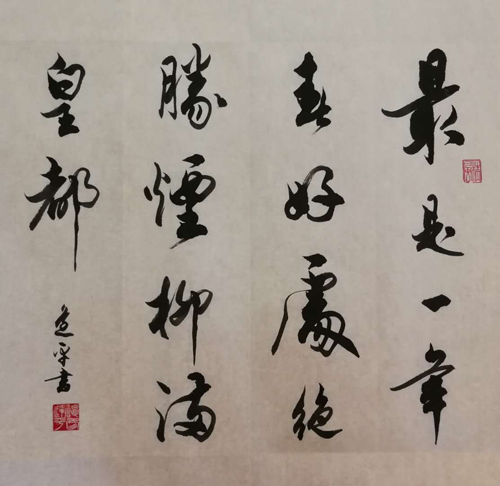 最是一年
春好處絕
勝煙柳滿
皇都
書